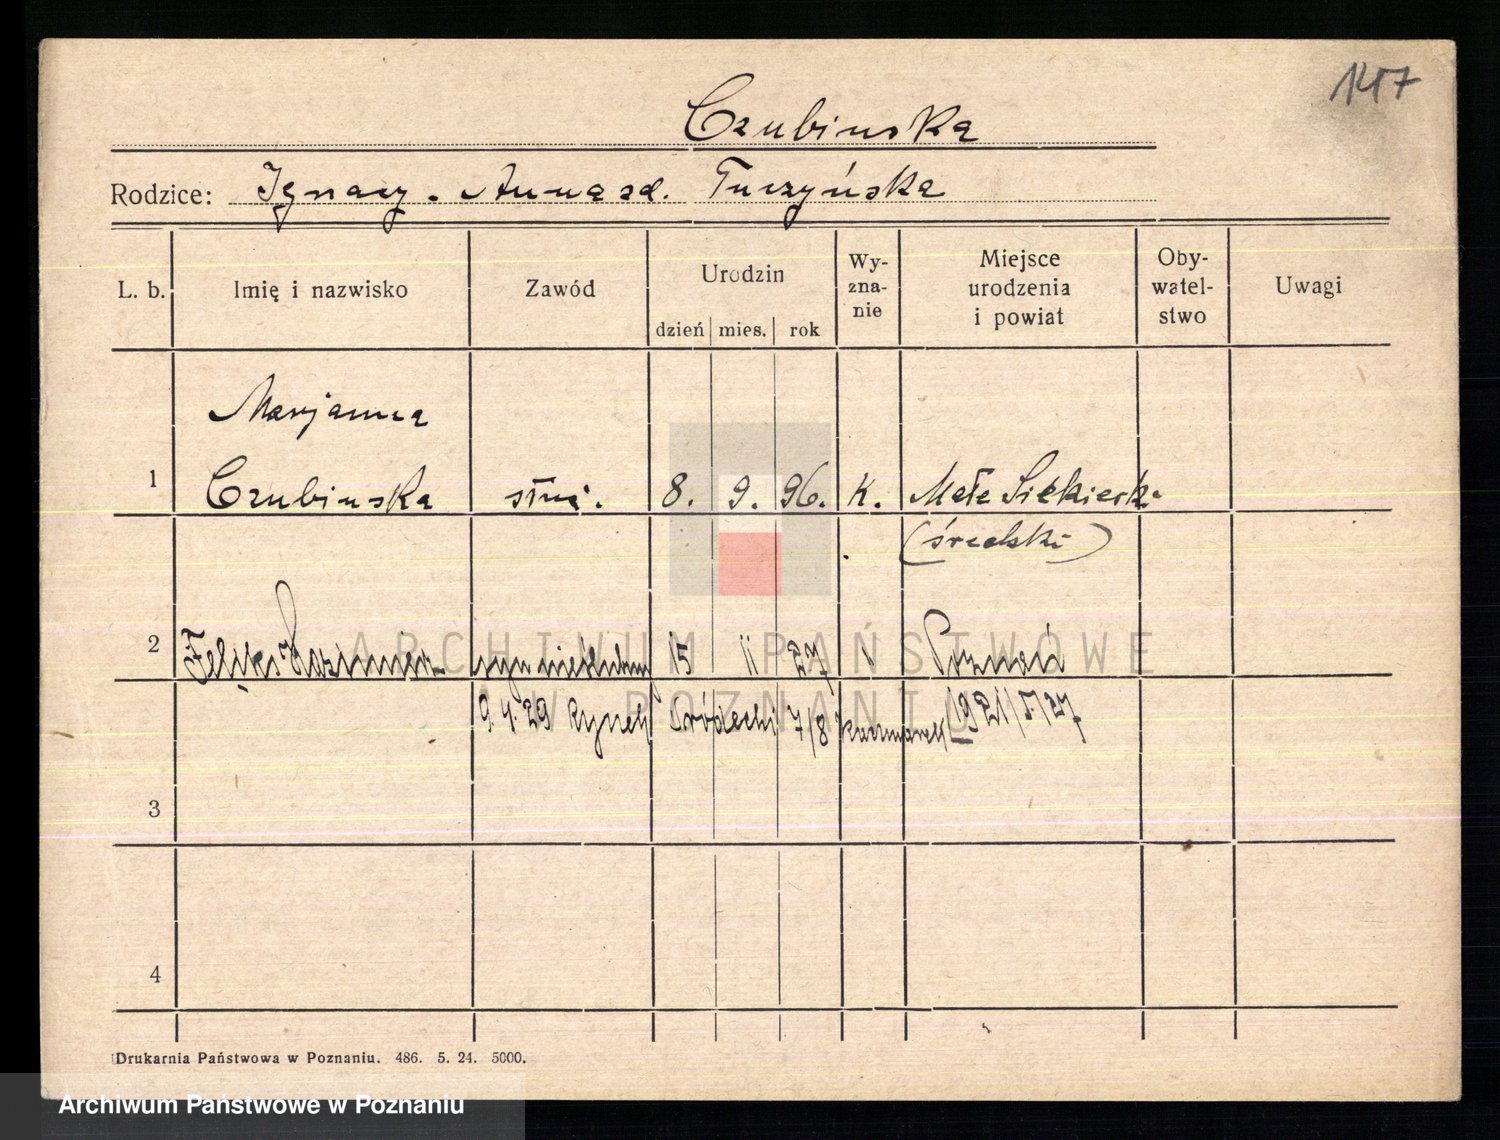 147
Czubinska
Rodzice: Ignacy. Anna zd. Tuczyńska
L. b. Imię i nazwisko Zawód Urodzin dzień mies. rok Wy-zna-nie Miejsce urodzenia i powiat Oby-watel-stwo Uwagi
Marjanna
1 Czubinska służ. 8. 9. 96. K. Małe Siekierk.
(średzki)
2 Feliks Kazimierz syn nieślubny 15 11 27 " Poznań
9.4.29 Rynek Śródecki 7/8 Kaczmarek
3
4
Drukarnia Państwowa w Poznaniu. 486. 5. 24. 5000.
ARCHIWUM PAŃSTWOWE
W POZNANIU
Archiwum Państwowe w Poznaniu